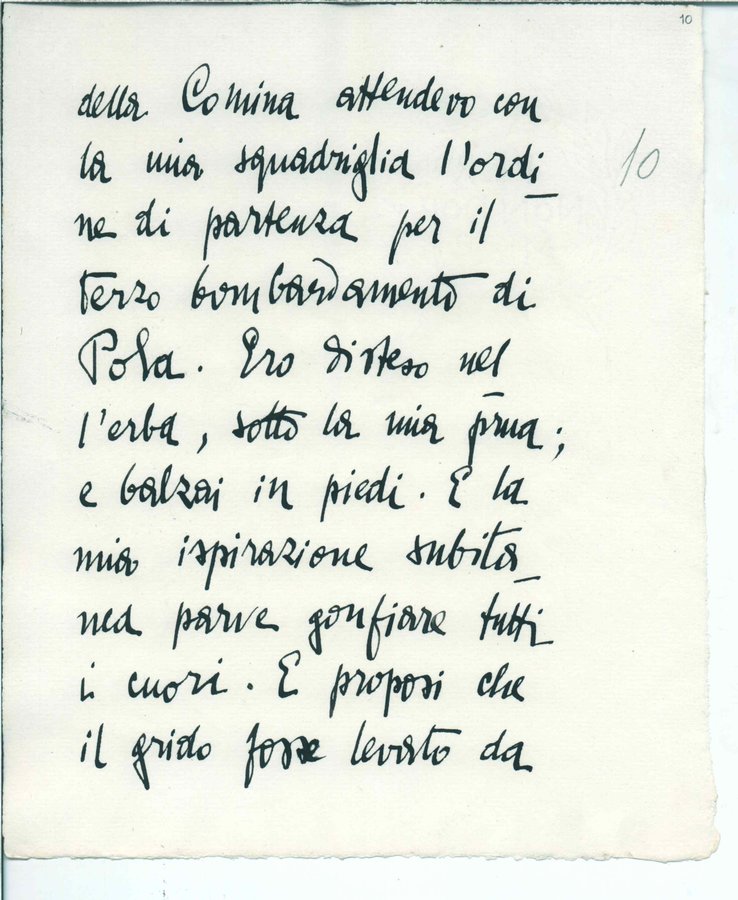 10
10
della Comina attendevo con
la mia squadriglia l'ordi
ne di partenza per il
terzo bombardamento di
Pola. Ero disteso nel
l'erba, sotto la mia prua;
e balzai in piedi. E la
mia ispirazione subita
nea parve gonfiare tutti
i cuori. E proposi che
il grido fosse levato da